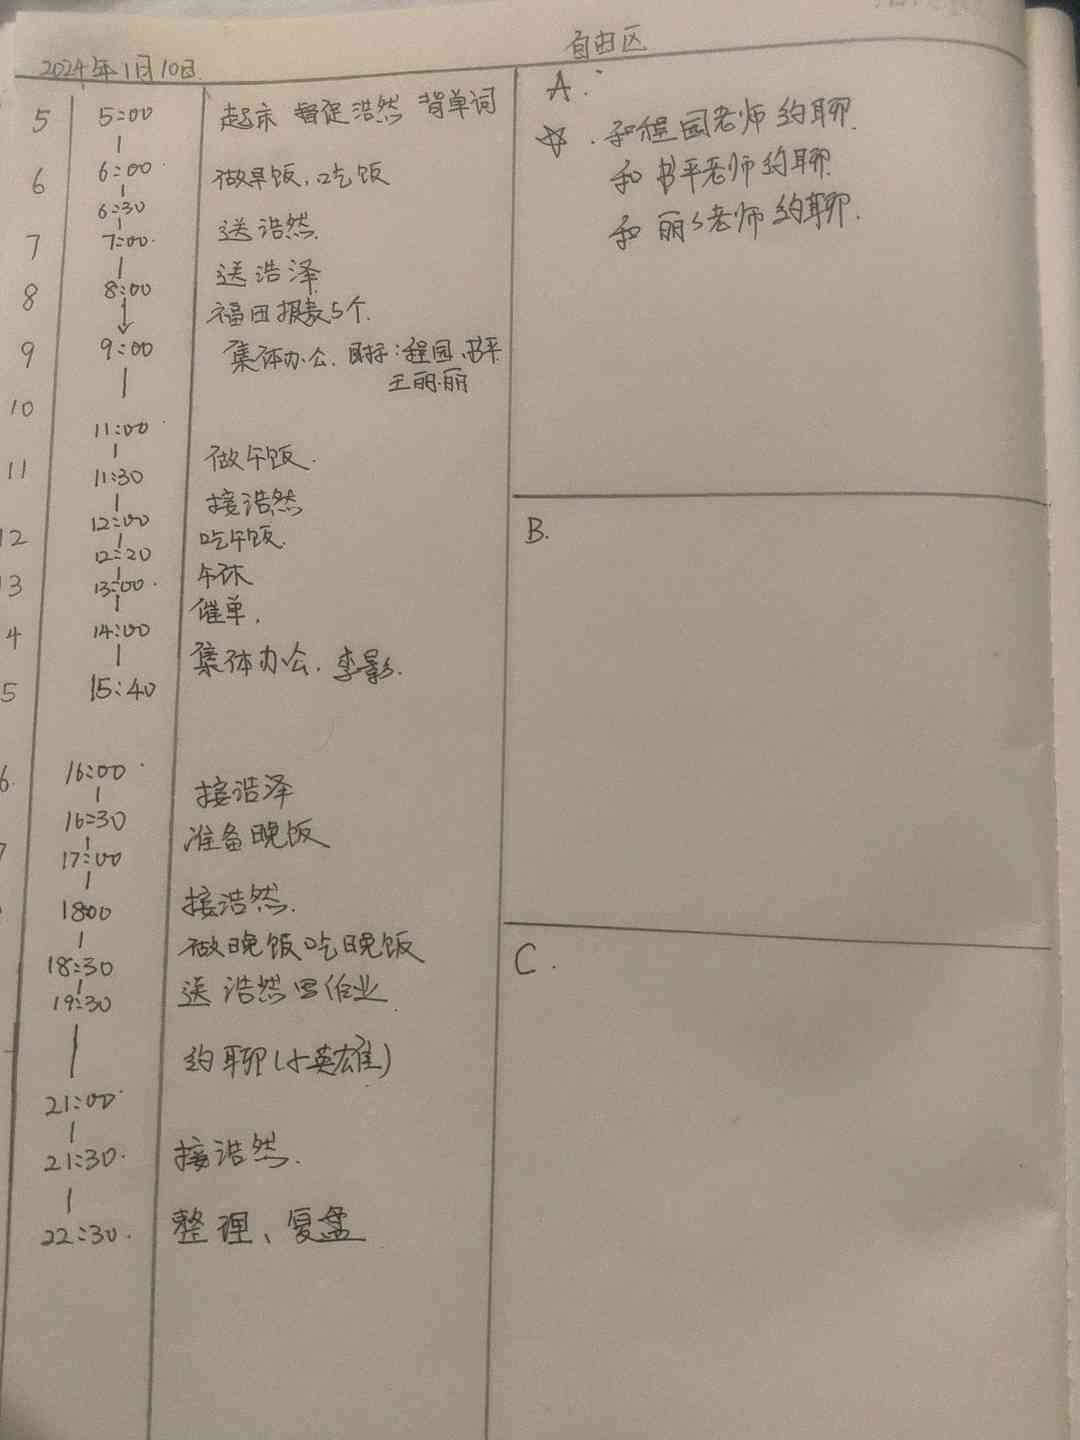 2024年1月10日
自由区
5 5:00 起床 督促浩然 背单词
6 6:00 做早饭,吃饭
6:30
7 7:00 送浩然.
送浩泽
8 8:00
福田报表5个.
9 9:00 集体办公. 目标:程园、书平
王丽丽
10
11:00
做午饭.
11 11:30
接浩然
12:00
吃午饭.
12:20
午休
13:00
催单.
14:00
集体办公. 李影.
15:40
16:00
接浩泽
16:30
准备晚饭
17:00
接浩然.
1800
做晚饭吃晚饭
18:30
送浩然写作业
19:30
约聊(小英雄)
21:00
接浩然.
21:30
整理、复盘
22:30
A:
☆ .和程园老师约聊.
和书平老师约聊.
和丽丽老师约聊.
B.
C.